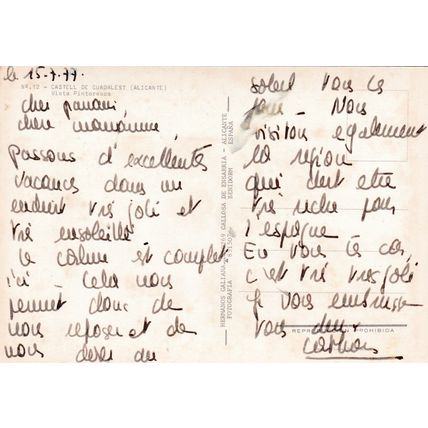 le 15.7.77.
Nº 12 - CASTELL DE GUADALEST (ALICANTE)
Vista Pintoresca
cher parrain
chère marraine,
Passons d'excellentes
vacances dans un
endroit très joli et
très ensoleillé
le calme est complet
ici cela nous
permet donc de
nous reposer et de
nous dorer au
HERMANOS GALIANA CALLOSA DE ENSARRIA - ALICANTE
FOTOGRAFIA BENIDORM ESPAÑA
soleil tous les
jours. Nous
visitons également
la région
qui doit être
très riche pour
l'espagne
En tous les cas
c'est très très joli
Je vous embrasse
tous deux
REPRODUCCION PROHIBIDA